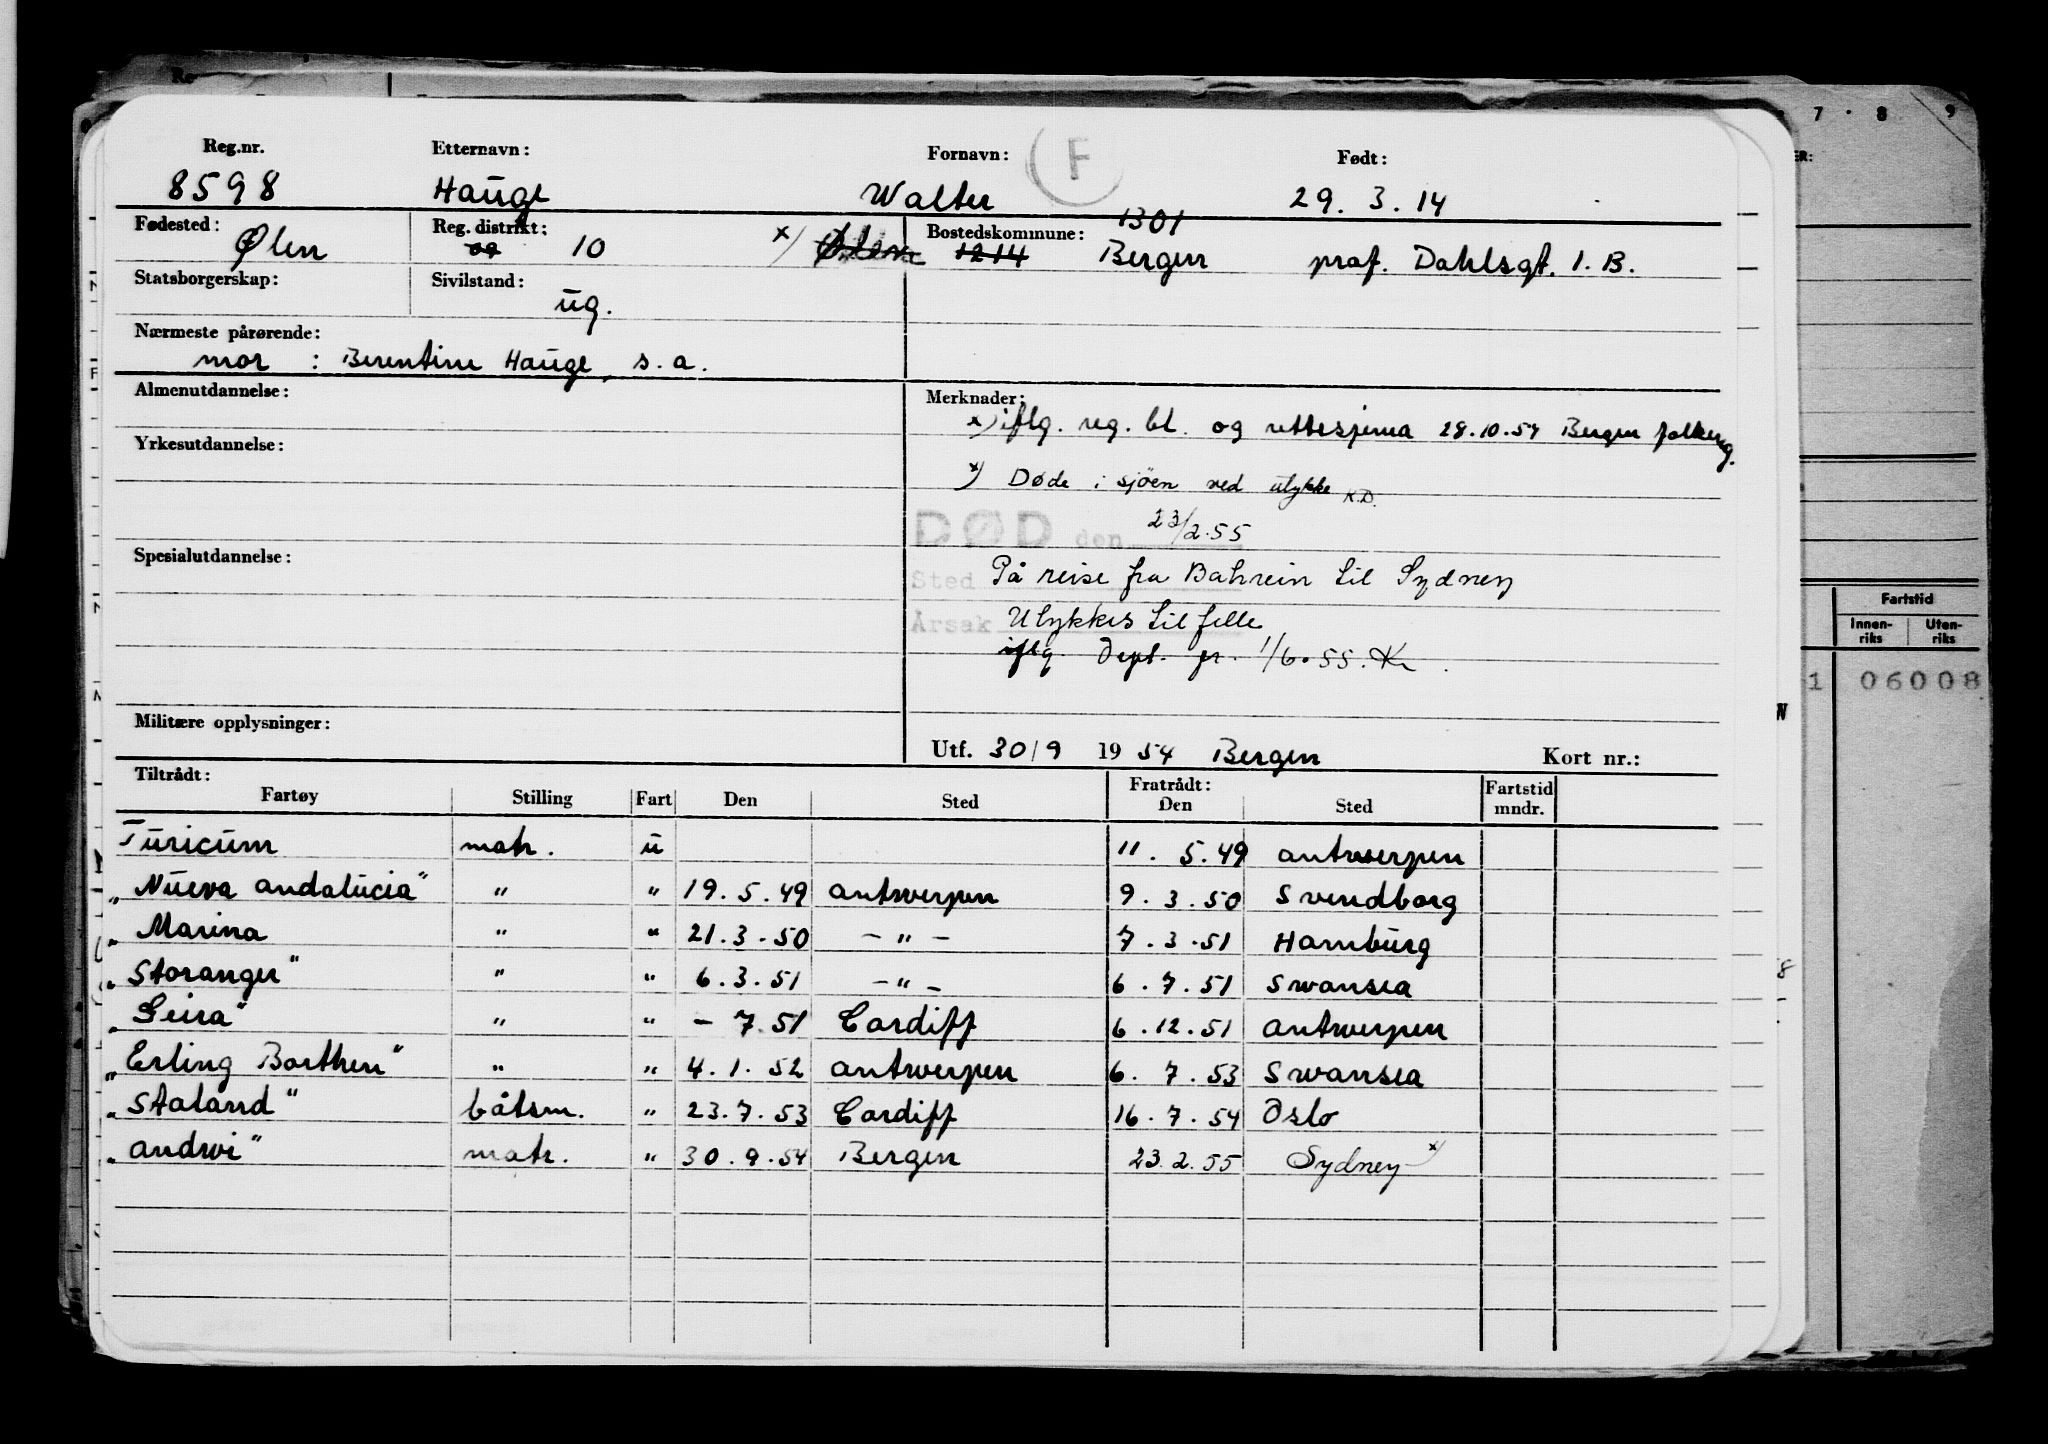 Reg.nr. Etternavn: Fornavn: F Født:
8598 Hauge Walter 29. 3. 14
Fødested: Reg. distrikt: Bostedskommune: 1301
Ølen 09 10 x) Ølen 1214 Bergen prof. Dahlsgt. 1. B.
Statsborgerskap: Sivilstand:
ug.
Nærmeste pårørende:
mor : Berentine Hauge, s. a.
Almenutdannelse: Merknader:
x) iflg. reg. bl. og rettesjema 28.10.54 Bergen folkereg.
Yrkesutdannelse:
x) Døde i sjöen ved ulykke K.D.
DØD den 23/2.55
Spesialutdannelse:
Sted På reise fra Bahrein til Sydney
Årsak Ulykkes tilfelle
iflg. Dept. fr. 1/6.55. Kr
Militære opplysninger:
Utf. 30/9 1954 Bergen Kort nr.:
Tiltrådt: Fratrådt: Fartstid
Fartøy Stilling Fart Den Sted Den Sted mndr.
Turicum matr. u 11. 5.49 Antwerpen
"Nueva Andalucia" " " 19.5.49 Antwerpen 9.3.50 Svendborg
" Marina " " 21.3.50 — " — 7.3.51 Hamburg
"Storanger" " " 6.3.51 — " — 6.7.51 Swansea
"Geira" " " – 7 51 Cardiff 6.12.51 Antwerpen
"Erling Borthen" " " 4.1.52 Antwerpen 6.7.53 Swansea
"Staland" båtsm. " 23.7.53 Cardiff 16.7.54 Oslo
"Andwi" matr. " 30.9.54 Bergen 23.2.55 Sydney x)
7 · 8 9
ER:
Fartstid
Innen-riks Uten-riks
1 06008